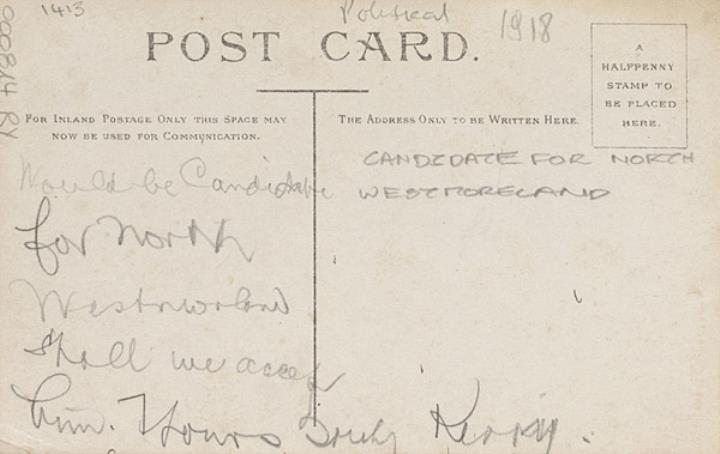 1413
Political
1918
000814 RY
POST CARD.
A
HALFPENNY
STAMP TO
BE PLACED
HERE.
FOR INLAND POSTAGE ONLY THIS SPACE MAY
NOW BE USED FOR COMMUNICATION.
THE ADDRESS ONLY TO BE WRITTEN HERE.
Would be Candidate
for North
Westmorland
Shall we accept
him. Yours Truly
CANDIDATE FOR NORTH
WESTMORELAND